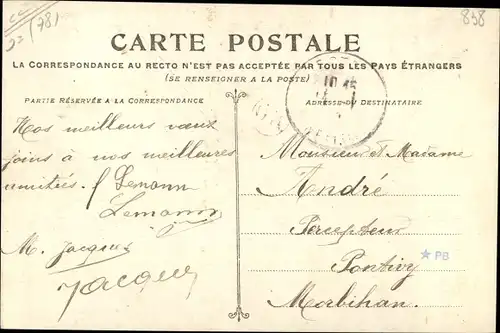 781
858
CARTE POSTALE
LA CORRESPONDANCE AU RECTO N'EST PAS ACCEPTÉE PAR TOUS LES PAYS ÉTRANGERS
(SE RENSEIGNER A LA POSTE)
PARTIE RÉSERVÉE A LA CORRESPONDANCE
ADRESSE DU DESTINATAIRE
Nos meilleurs vœux
joins à nos meilleures
amitiés. Lemann
Lemann
M. Jacques
Jacques
Monsieur et Madame
André
Percepteur
Pontivy
Morbihan.
PB